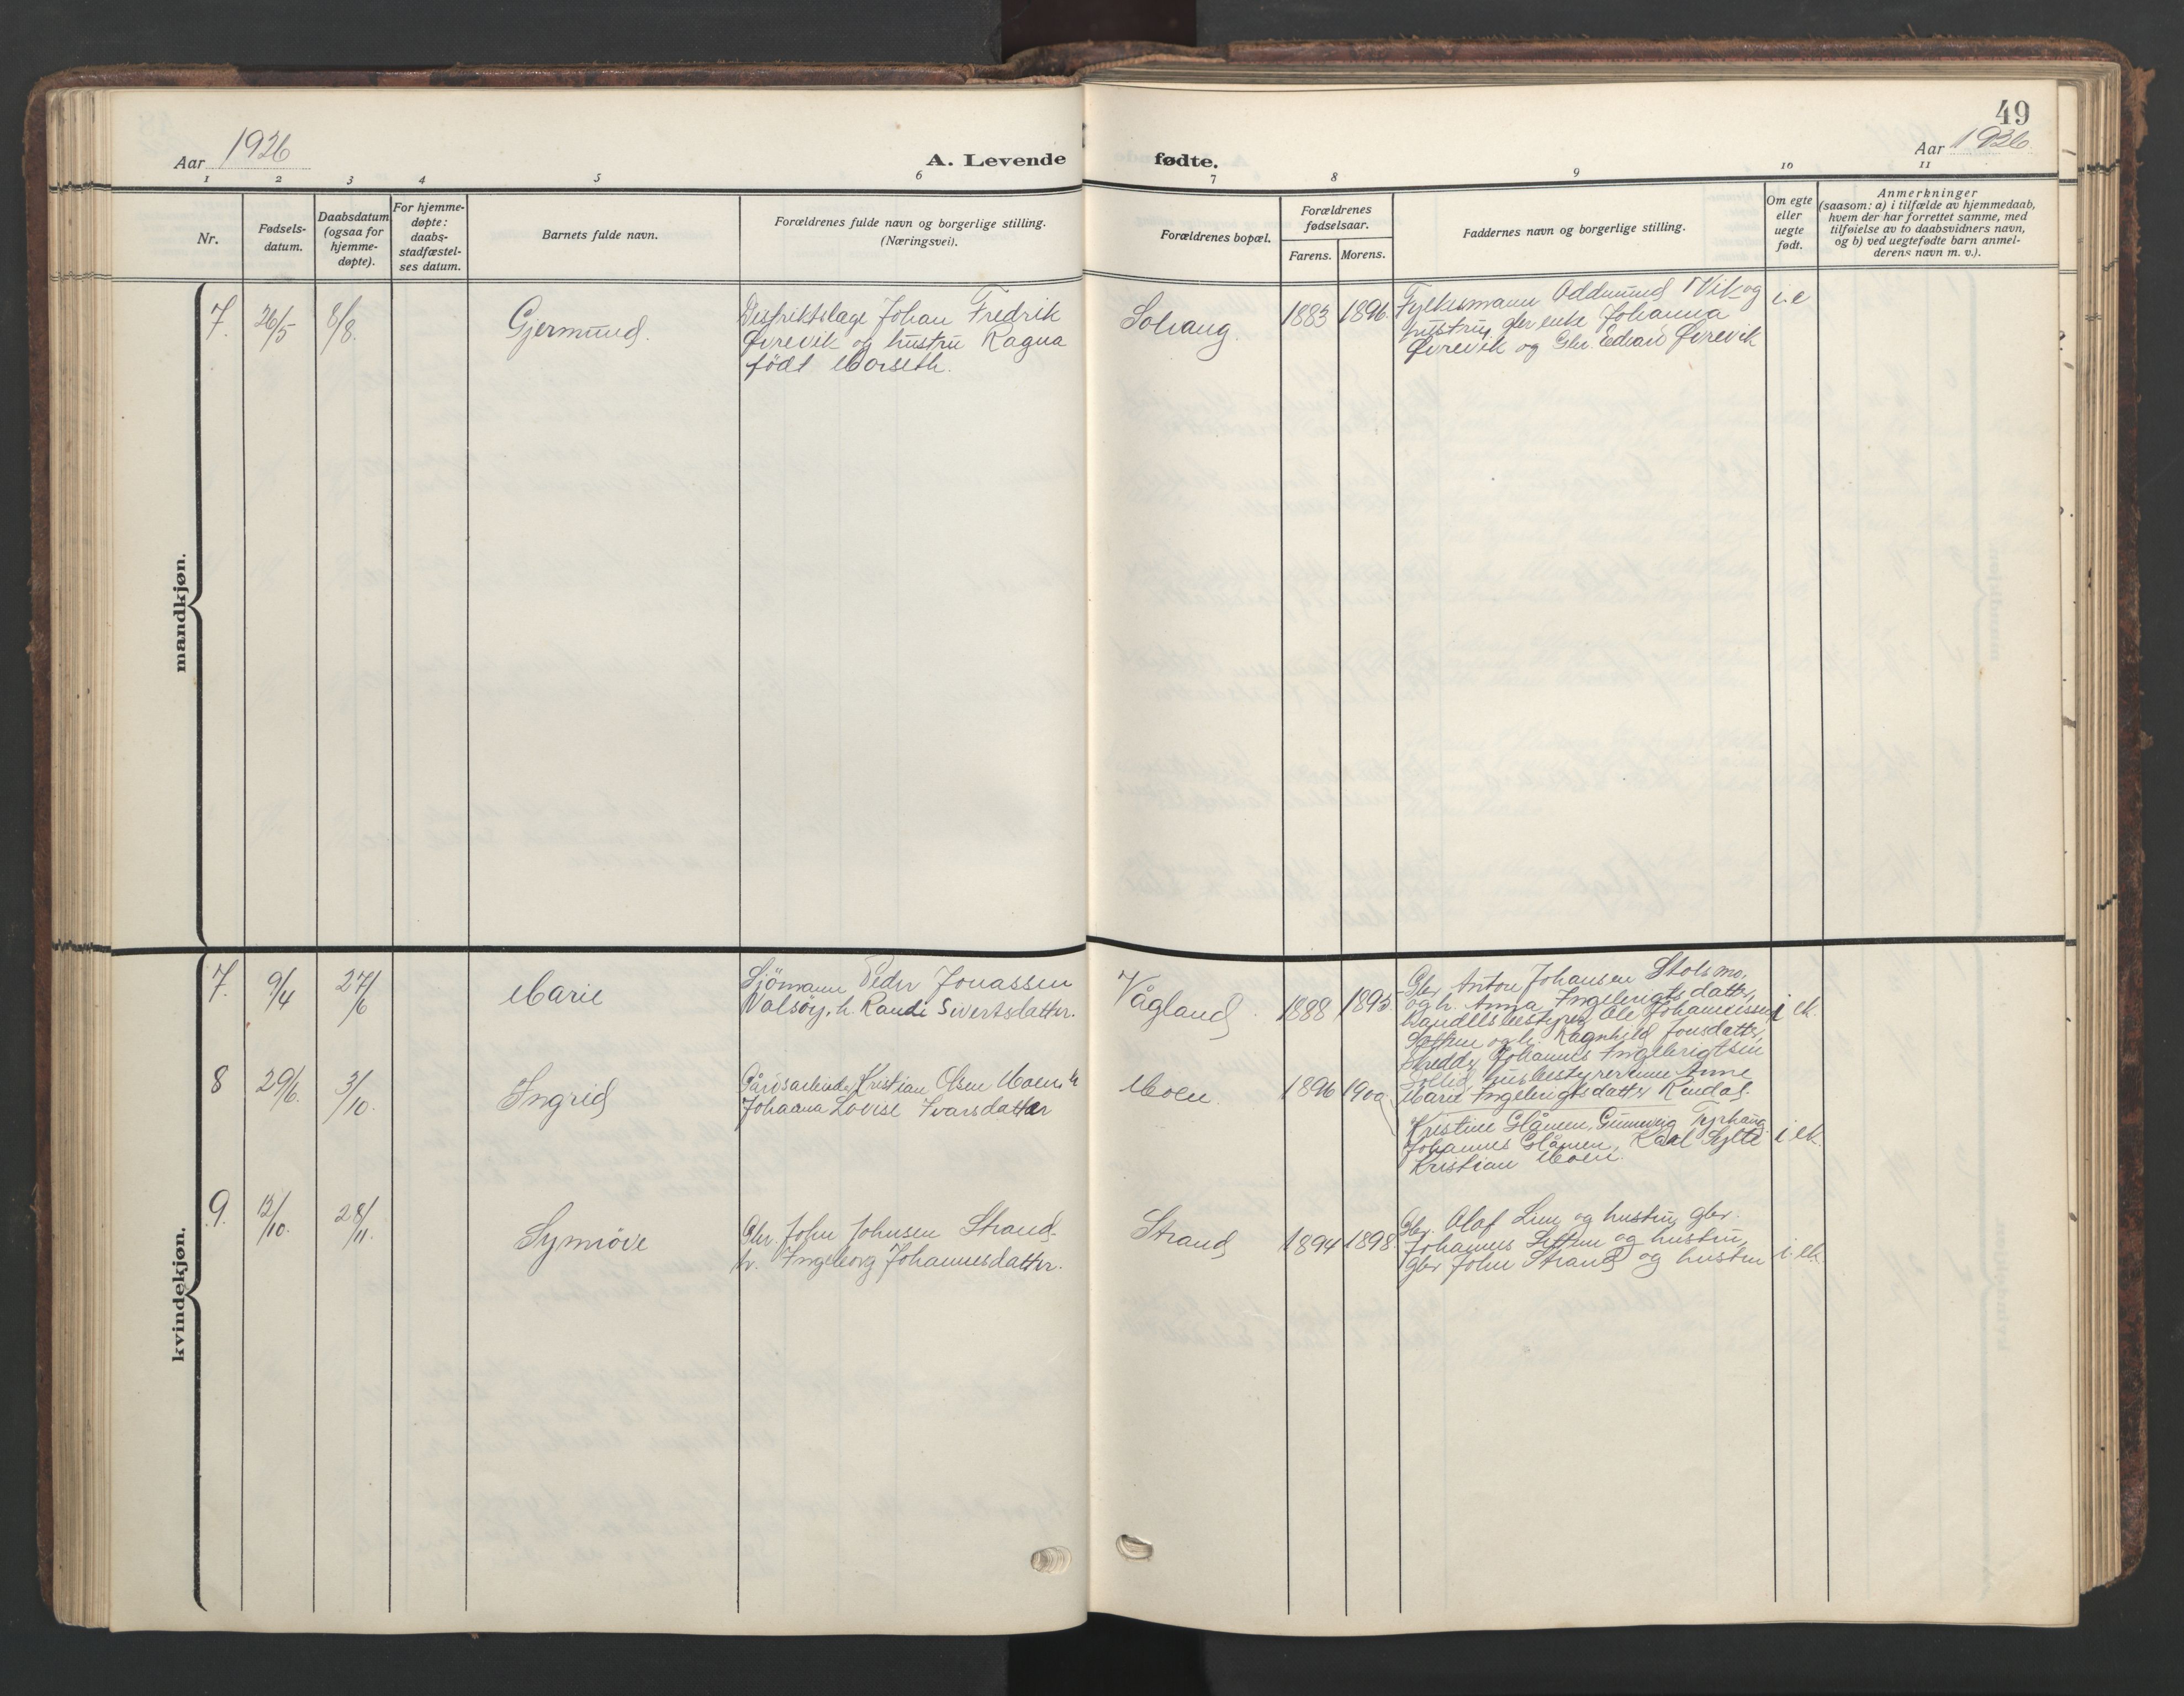 49
Aar 1926
A. Levende
fødte.
Aar 1926
1 2 3 4 5 6 7 8 9 10 11
Nr.
Fødsels-
datum.
Daabsdatum
(ogsaa for
hjemme-
døpte).
For hjemme-
døpte:
daabs-
stadfæstel-
ses datum.
Barnets fulde navn.
Forældrenes fulde navn og borgerlige stilling.
(Næringsvei).
Forældrenes bopæl.
Forældrenes
fødselsaar.
Farens. Morens.
Faddernes navn og borgerlige stilling.
Om egte
eller
uegte
født.
Anmerkninger
(saasom: a) i tilfælde av hjemmedaab,
hvem der har forrettet samme, med
tilføielse av to daabsvidners navn,
og b) ved uegtefødte barn anmel-
derens navn m. v.).
mandkjøn.
7. 26/5 8/8. Gjermund.
Distriktslæge Johan Fredrik
Øvrevik og hustru Ragna
födt Morseth.
Solvang. 1883 1896.
Fylkesmann Oddmund Vik og
hustru, gbr enke Johanna
Øvrevik og Gbr. Edvard Øvrevik
i. e
kvindekjøn.
7. 9/4 27/6 Marie
Sjömann Peder Jonassen
Valsöy, h. Randi Sivertsdatter.
Vågland. 1888 1895.
Gbr. Anton Johansen Stolsmo,
og h. Anna Ingebrigtsdatter,
Handelsbestyrer Ole Johannissen
og h. Ragnhild Jonsdatter,
Johannes Ingebrigtsen
Sollid, husbestyrerinne Anne
Marie Ingebrigtsdatter Rindal.
i ek.
8 29/6. 3/10. Ingrid
Gårdsarbeider Kristian Olsen Moen, h
Johanna Lovise Ivarsdatter
Moen. 1896 1900
Kristine Glåmen, Gunnvig Tyrhaug
Johannes Glåmen, Karl Sylte
Kristian Moen.
i ek.
9. 12/10. 28/11. Synnöve
Gbr. John Johnsen Strand.
h. Ingeborg Johannesdatter.
Strand 1894 1898
Gbr. Olaf Lien og hustru, gbr.
Johannes Settem og hustru,
gbr John Strand og hustru
i. ek.